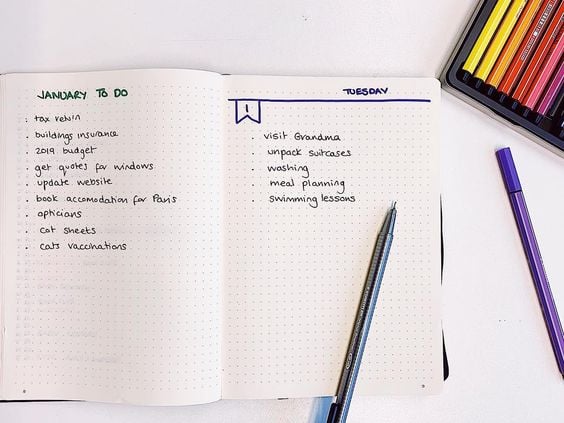 JANUARY TO DO
. tax return
. buildings insurance
. 2019 budget
. get quotes for windows
. update website
. book accomodation for Paris
. opticians
. cot sheets
. cats vaccinations
TUESDAY
1
. visit Grandma
. unpack suitcases
. washing
. meal planning
. swimming lessons